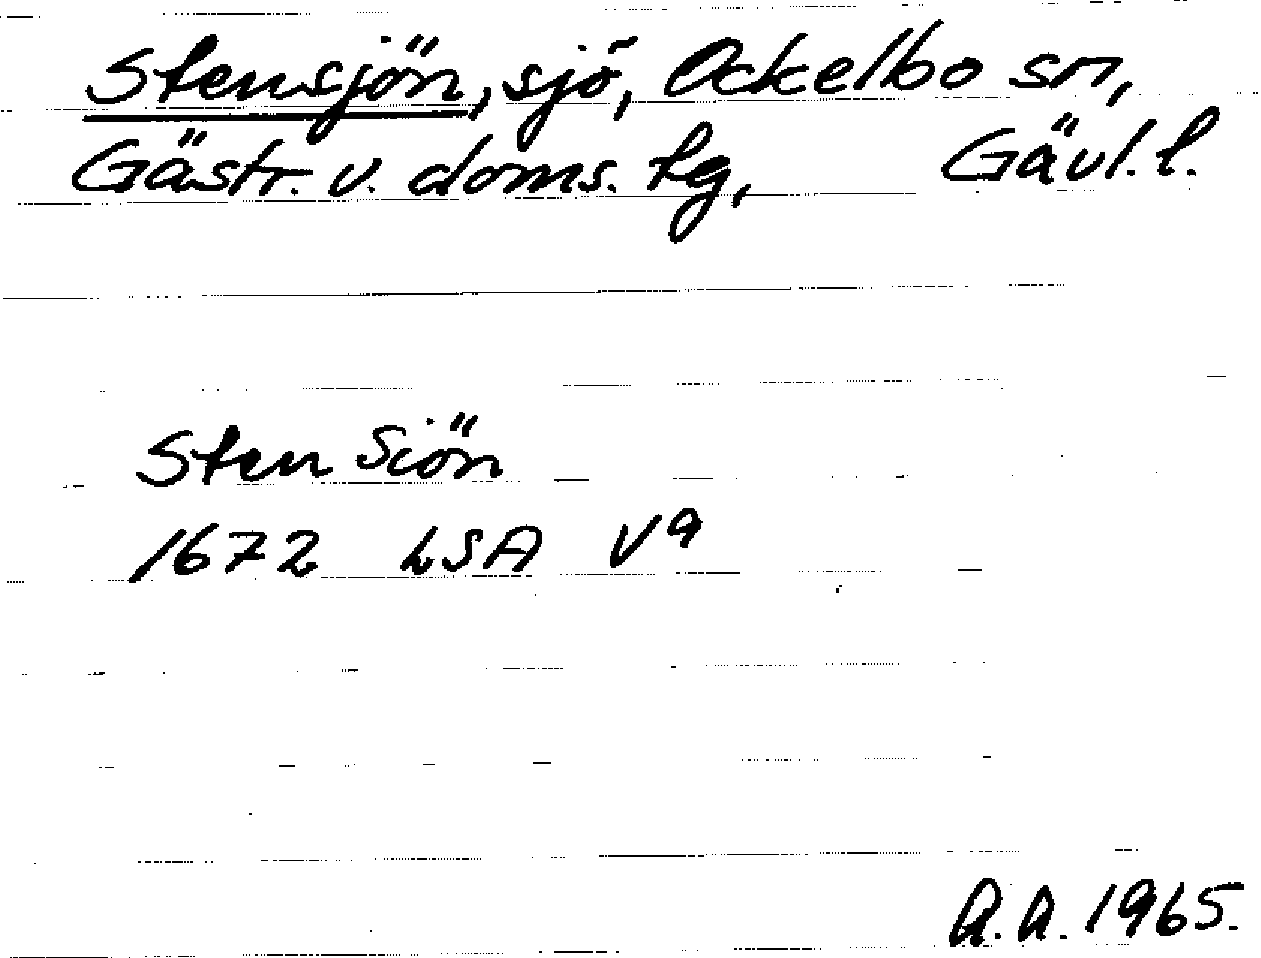 Stensjön, sjö, Ockelbo sn,
Gästr. v. doms. tg, Gävl. l.
Sten Siön
1672 LSA V9
A.A. 1965.